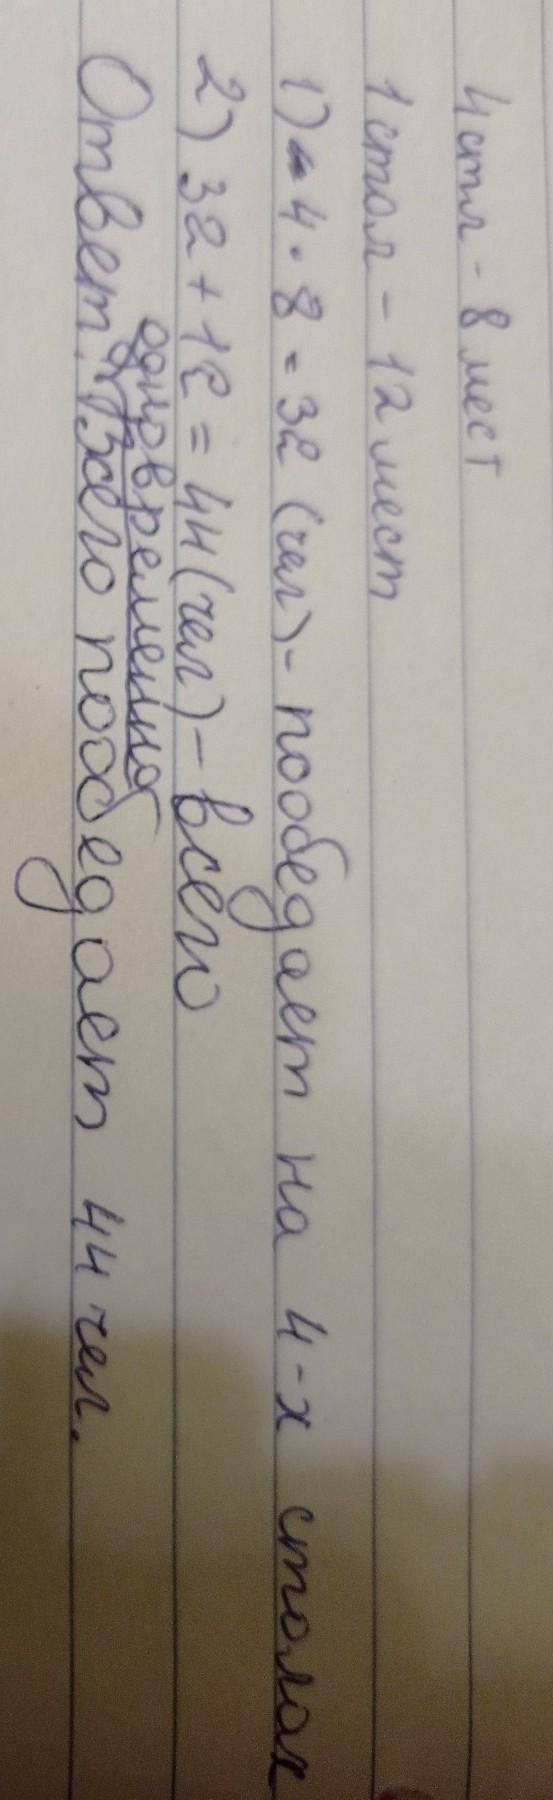 4 стл - 8 мест
1 стол - 12 мест
1) 4 · 8 = 32 (чел) - пообедает на 4-х столах
2) 32 + 12 = 44 (чел) - всего
одновременно
Ответ: Всего пообедает 44 чел.